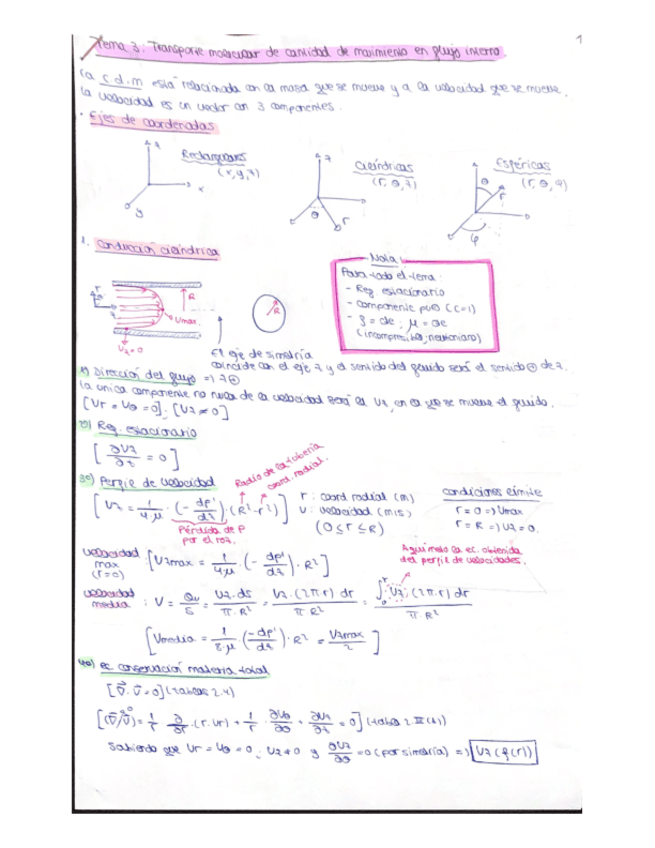 1
Tema 3: Transporte molecular de cantidad de movimiento en flujo interno
La c.d.m está relacionada con la masa que se mueve y a la velocidad que se mueve.
La velocidad es un vector con 3 componentes.
· Ejes de coordenadas
Rectangulares
(x,y,z)
z
x
y
Cilíndricas
(r, θ, z)
z
θ
r
Esféricas
(r, θ, φ)
θ
r
φ
1. Conducción cilíndrica
R
Vmax
Vz = 0
R
Nota:
Para todo el tema:
- Reg estacionario
- Componente puro (c=1)
- ρ = cte ; μ = cte
(incompresible, newtoniano)
El eje de simetría
coincide con el eje z y el sentido del fluido será el sentido ⊕ de z.
1º) Dirección del flujo => z ⊕
La única componente no nula de la velocidad será la Vz, en la que se mueve el fluido.
[Vr = Vθ = 0]; [Vz ≠ 0]
2º) Reg. estacionario
[∂Vz/∂t = 0]
3º) Perfil de velocidad
Radio de la tubería
coord. radial.
[Vz = 1/4·μ · (- dp'/dz) · (R² - r²)]
Pérdida de P
por el roz.
r : coord radial (m)
v : velocidad (m/s)
(0 ≤ r ≤ R)
Condiciones límite
r = 0 => Vmax
r = R => Vz = 0.
Velocidad
max
(r=0)
[Vzmax = 1/4·μ · (- dp'/dz) · R²]
Aquí meto la ec. obtenida
del perfil de velocidades.
velocidad
media : V = Qv/S = Vz·ds/π·R² = Vz·(2π·r) dr/π R² = ∫₀ʳ Vz (2π r) dr/π·R²
[Vmedia = 1/8·μ · (-dp'/dz) · R² = Vzmax/2]
4º) Ec. conservación materia total
[∇·v = 0] (tablas 2.4)
[(∇·v) = 1/r ∂/∂r · (r·Vr) + 1/r · ∂Vθ/∂θ + ∂Vz/∂z = 0] (tabla 2.II (B))
Sabiendo que Vr = Vθ = 0 ; Vz ≠ 0 y ∂Vz/∂θ = 0 (por simetría) => Vz (f(r))